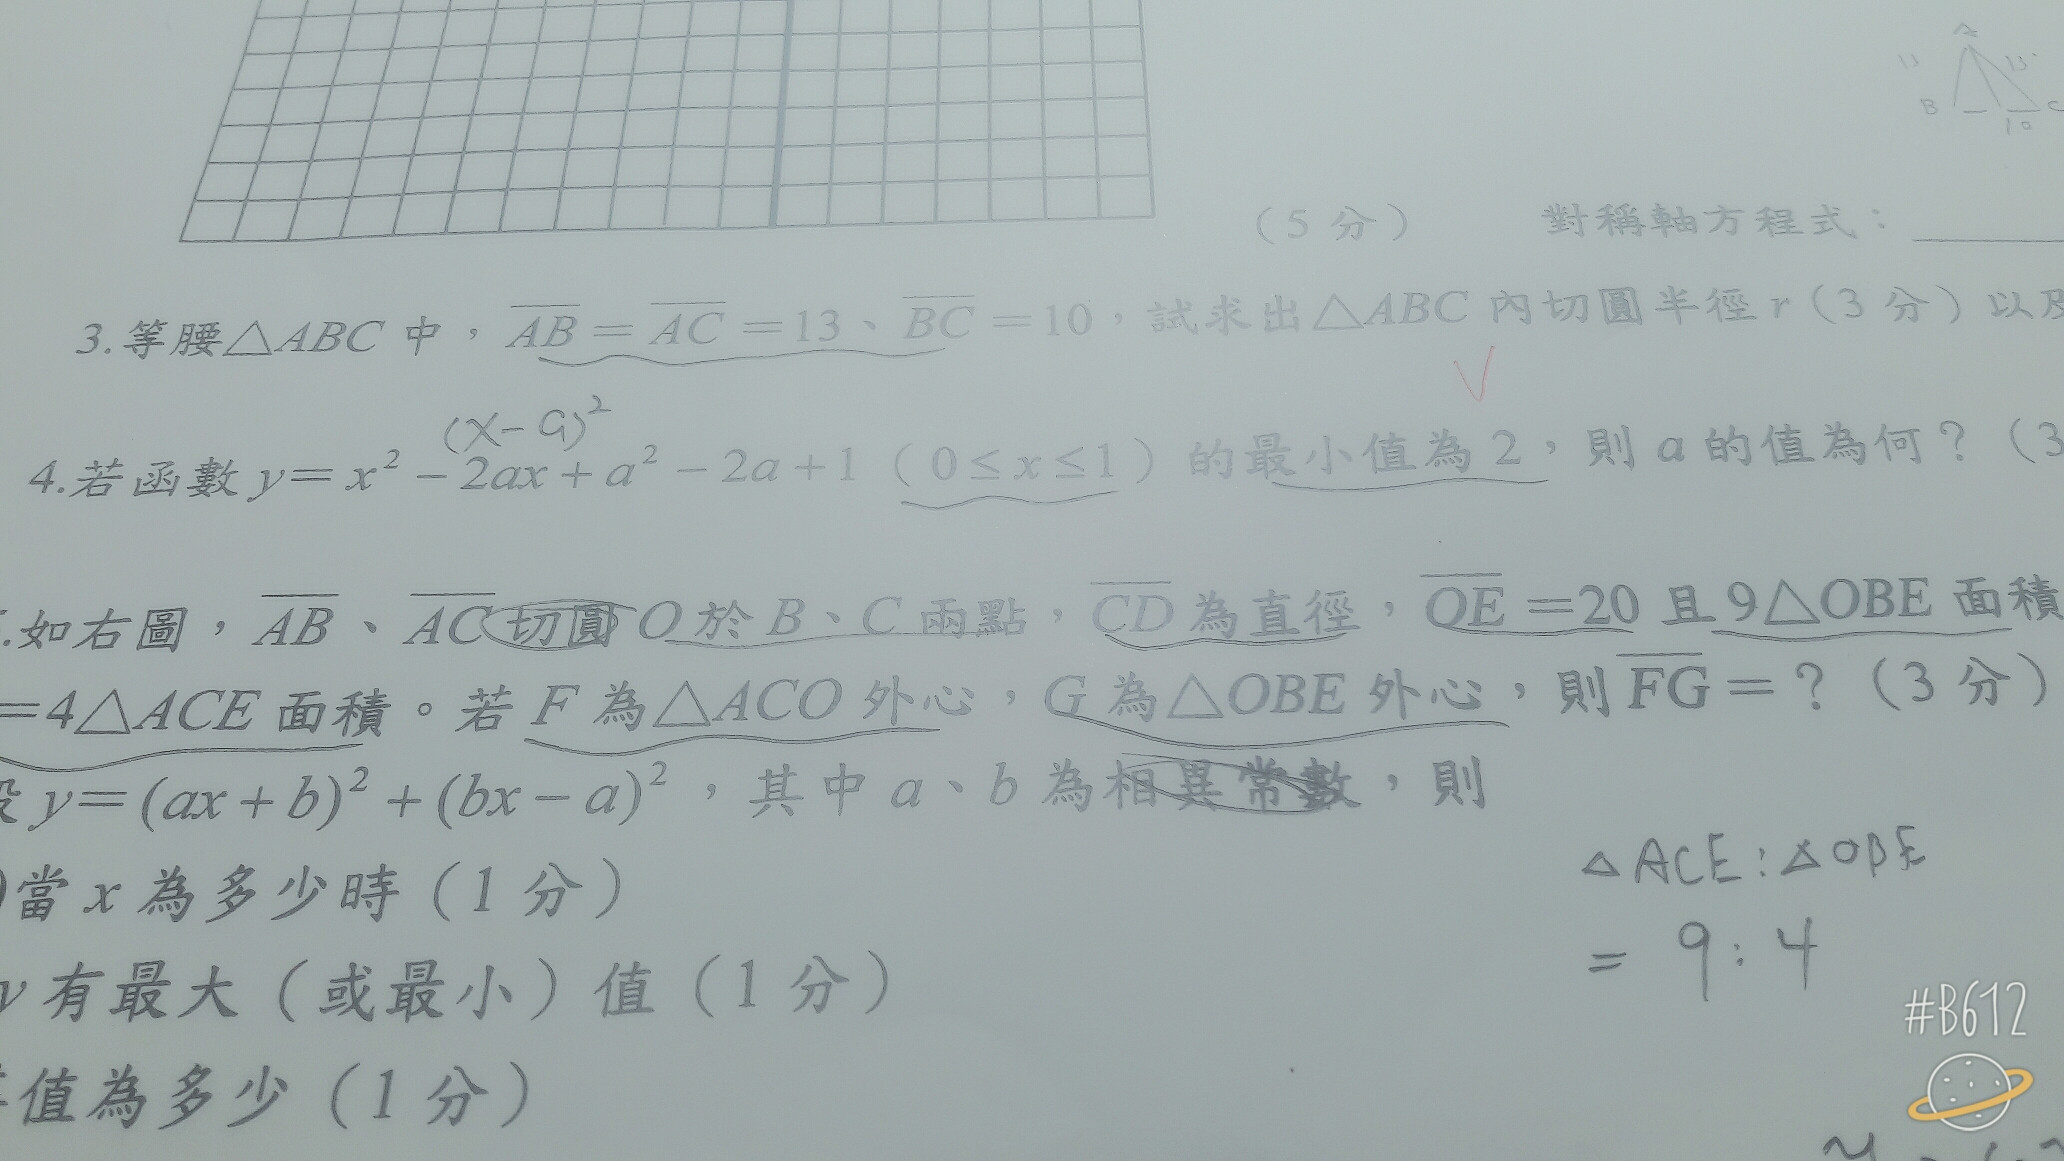 A
13
B
C
10
(5 分) 對稱軸方程式:
3.等腰△ABC 中,AB = AC =13、BC =10,試求出△ABC 內切圓半徑 r(3 分)以及
(x-a)²
4.若函數 y= x² - 2ax + a² - 2a + 1 ( 0 ≤ x ≤ 1 ) 的最小值為 2,則 a 的值為何?(3
.如右圖,AB、AC切圓 O 於 B、C 兩點,CD 為直徑,OE =20 且 9△OBE 面積
=4△ACE 面積。若 F 為△ACO 外心,G 為△OBE 外心,則 FG = ?(3 分)
設 y=(ax + b)² + (bx - a)²,其中 a、b 為相異常數,則
)當 x 為多少時(1 分)
y 有最大(或最小)值(1 分)
值為多少(1 分)
△ACE:△OBE
= 9:4
#B612